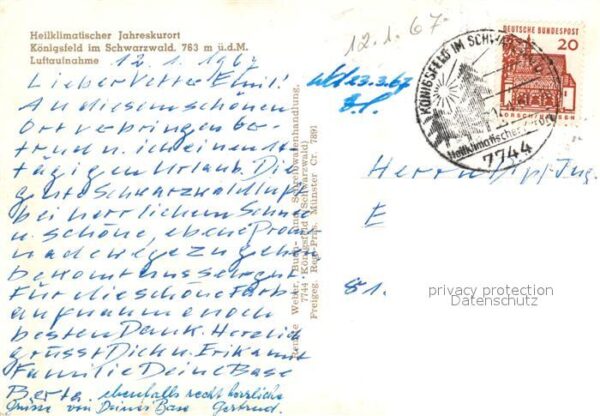 Heilklimatischer Jahreskurort
Königsfeld im Schwarzwald, 763 m ü.d.M.
Luftaufnahme
12.1.1967
Lieber Vetter Emil!
An diesem schönen
Ort verbringen Ber-
trud u. ich einen 14
tägigen Urlaub. Die
gute Schwarzwaldluft
bei herrlichem Schnee
u. schöne, ebene Prome
nadewege zu gehen
bekommt uns sehr gut
Für die schöne Farb
aufnahme noch
besten Dank. Herzlich
grüsst Dich u. Erika mit
Familie Deine Base
Berta. ebenfalls recht herzliche
Grüsse von Deiner Base Gertrud.
12.1.67
23.3.67
Weber, Buch- und Schreibwarenhandlung,
7744 Königsfeld (Schwarzwald)
Freigeg. Reg.-Präs. Münster Cr. 7891
KÖNIGSFELD IM SCHWARZWALD
Heilklimatischer
7744
DEUTSCHE BUNDESPOST
20
LORSCH/HESSEN
Herrn Dipl. Ing.
E
81.
privacy protection
Datenschutz